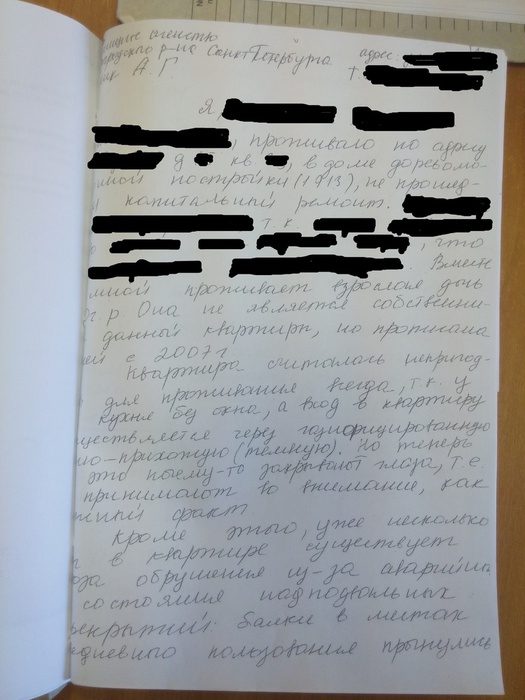 агенству
р-на Санкт Петербурга адрес:
ик А. Г. т
Я,
, проживаю по адресу
д кв , в доме дорево-
ной постройки (1913), не прошед-
капитальный ремонт.
т.к
, что
Вместе
мной проживает взрослая дочь
г.р Она не является собственни-
данной квартиры, но прописана
ней с 2007 г
Квартира считалась непригод-
для проживания всегда, т.к. у
кухня без окна, а вход в квартиру
уществляется через газифицированную
ю-прихожую (темную). Но теперь
это почему-то закрывают глаза, т.е.
принимают во внимание, как
жный факт.
Кроме этого, уже несколько
в квартире существует
оза обрушения из-за аварийн
состояния надподвальных
рекрытий: балки в местах
едневного пользования прогнулись